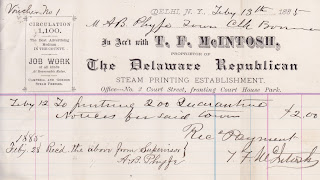 Voucher No 1
DELHI, N. Y. Feby 13th 1885
CIRCULATION
1,100.
The Best Advertising
Medium
IN THE COUNTY.
JOB WORK
M A B Phyfe Town Clk Bovina
In Acc't with T. F. McINTOSH,
PROPRIETOR OF
The Delaware Republican
STEAM PRINTING ESTABLISHMENT.
Office—No. 2 Court Street, fronting Court House Park.
Feby 12 To printing 200 Quarantine
Notices for said town $2.00
1885 Rec Payment
Feby 28 Recd the above from Supervisor T F McIntosh
A B Phyfe